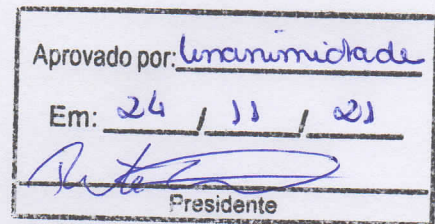 Aprovado por: Unanimidade
Em: 24 / 11 / 21
Presidente